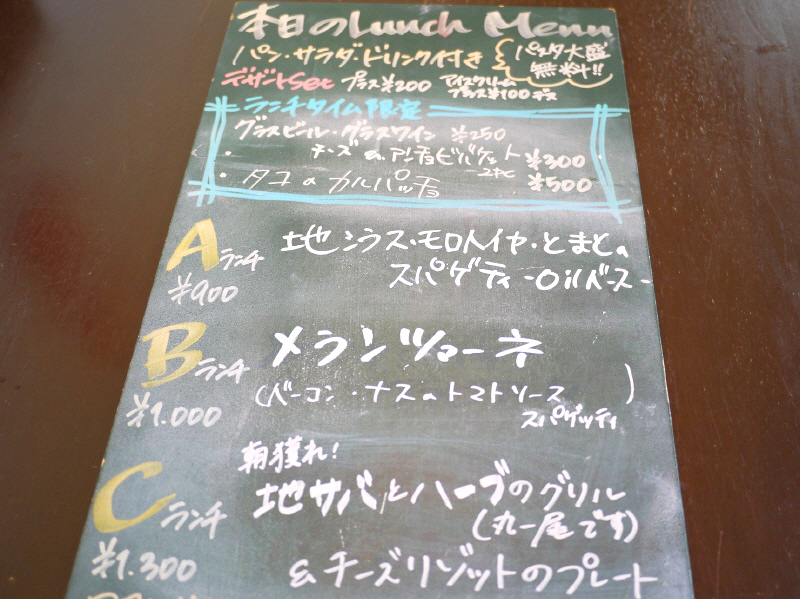 本日のLunch Menu
パン・サラダ・ドリンク付き
パスタ大盛
無料!!
デザートSet プラス¥200 アイスクリーム
プラス¥100デス
ランチタイム限定
グラスビール・グラスワイン ¥250
・ チーズのアンチョビバケット ¥300
-2Pc
・タコのカルパッチョ ¥500
Aランチ 地シラス・モロヘイヤ・とまとの
¥900 スパゲティ -Oilベース-
Bランチ メランツァーネ
¥1.000 (ベーコン・ナスのトマトソース
スパゲッティ)
朝獲れ!
Cランチ 地サバとハーブのグリル
(丸一尾です)
¥1.300 &チーズリゾットのプレート